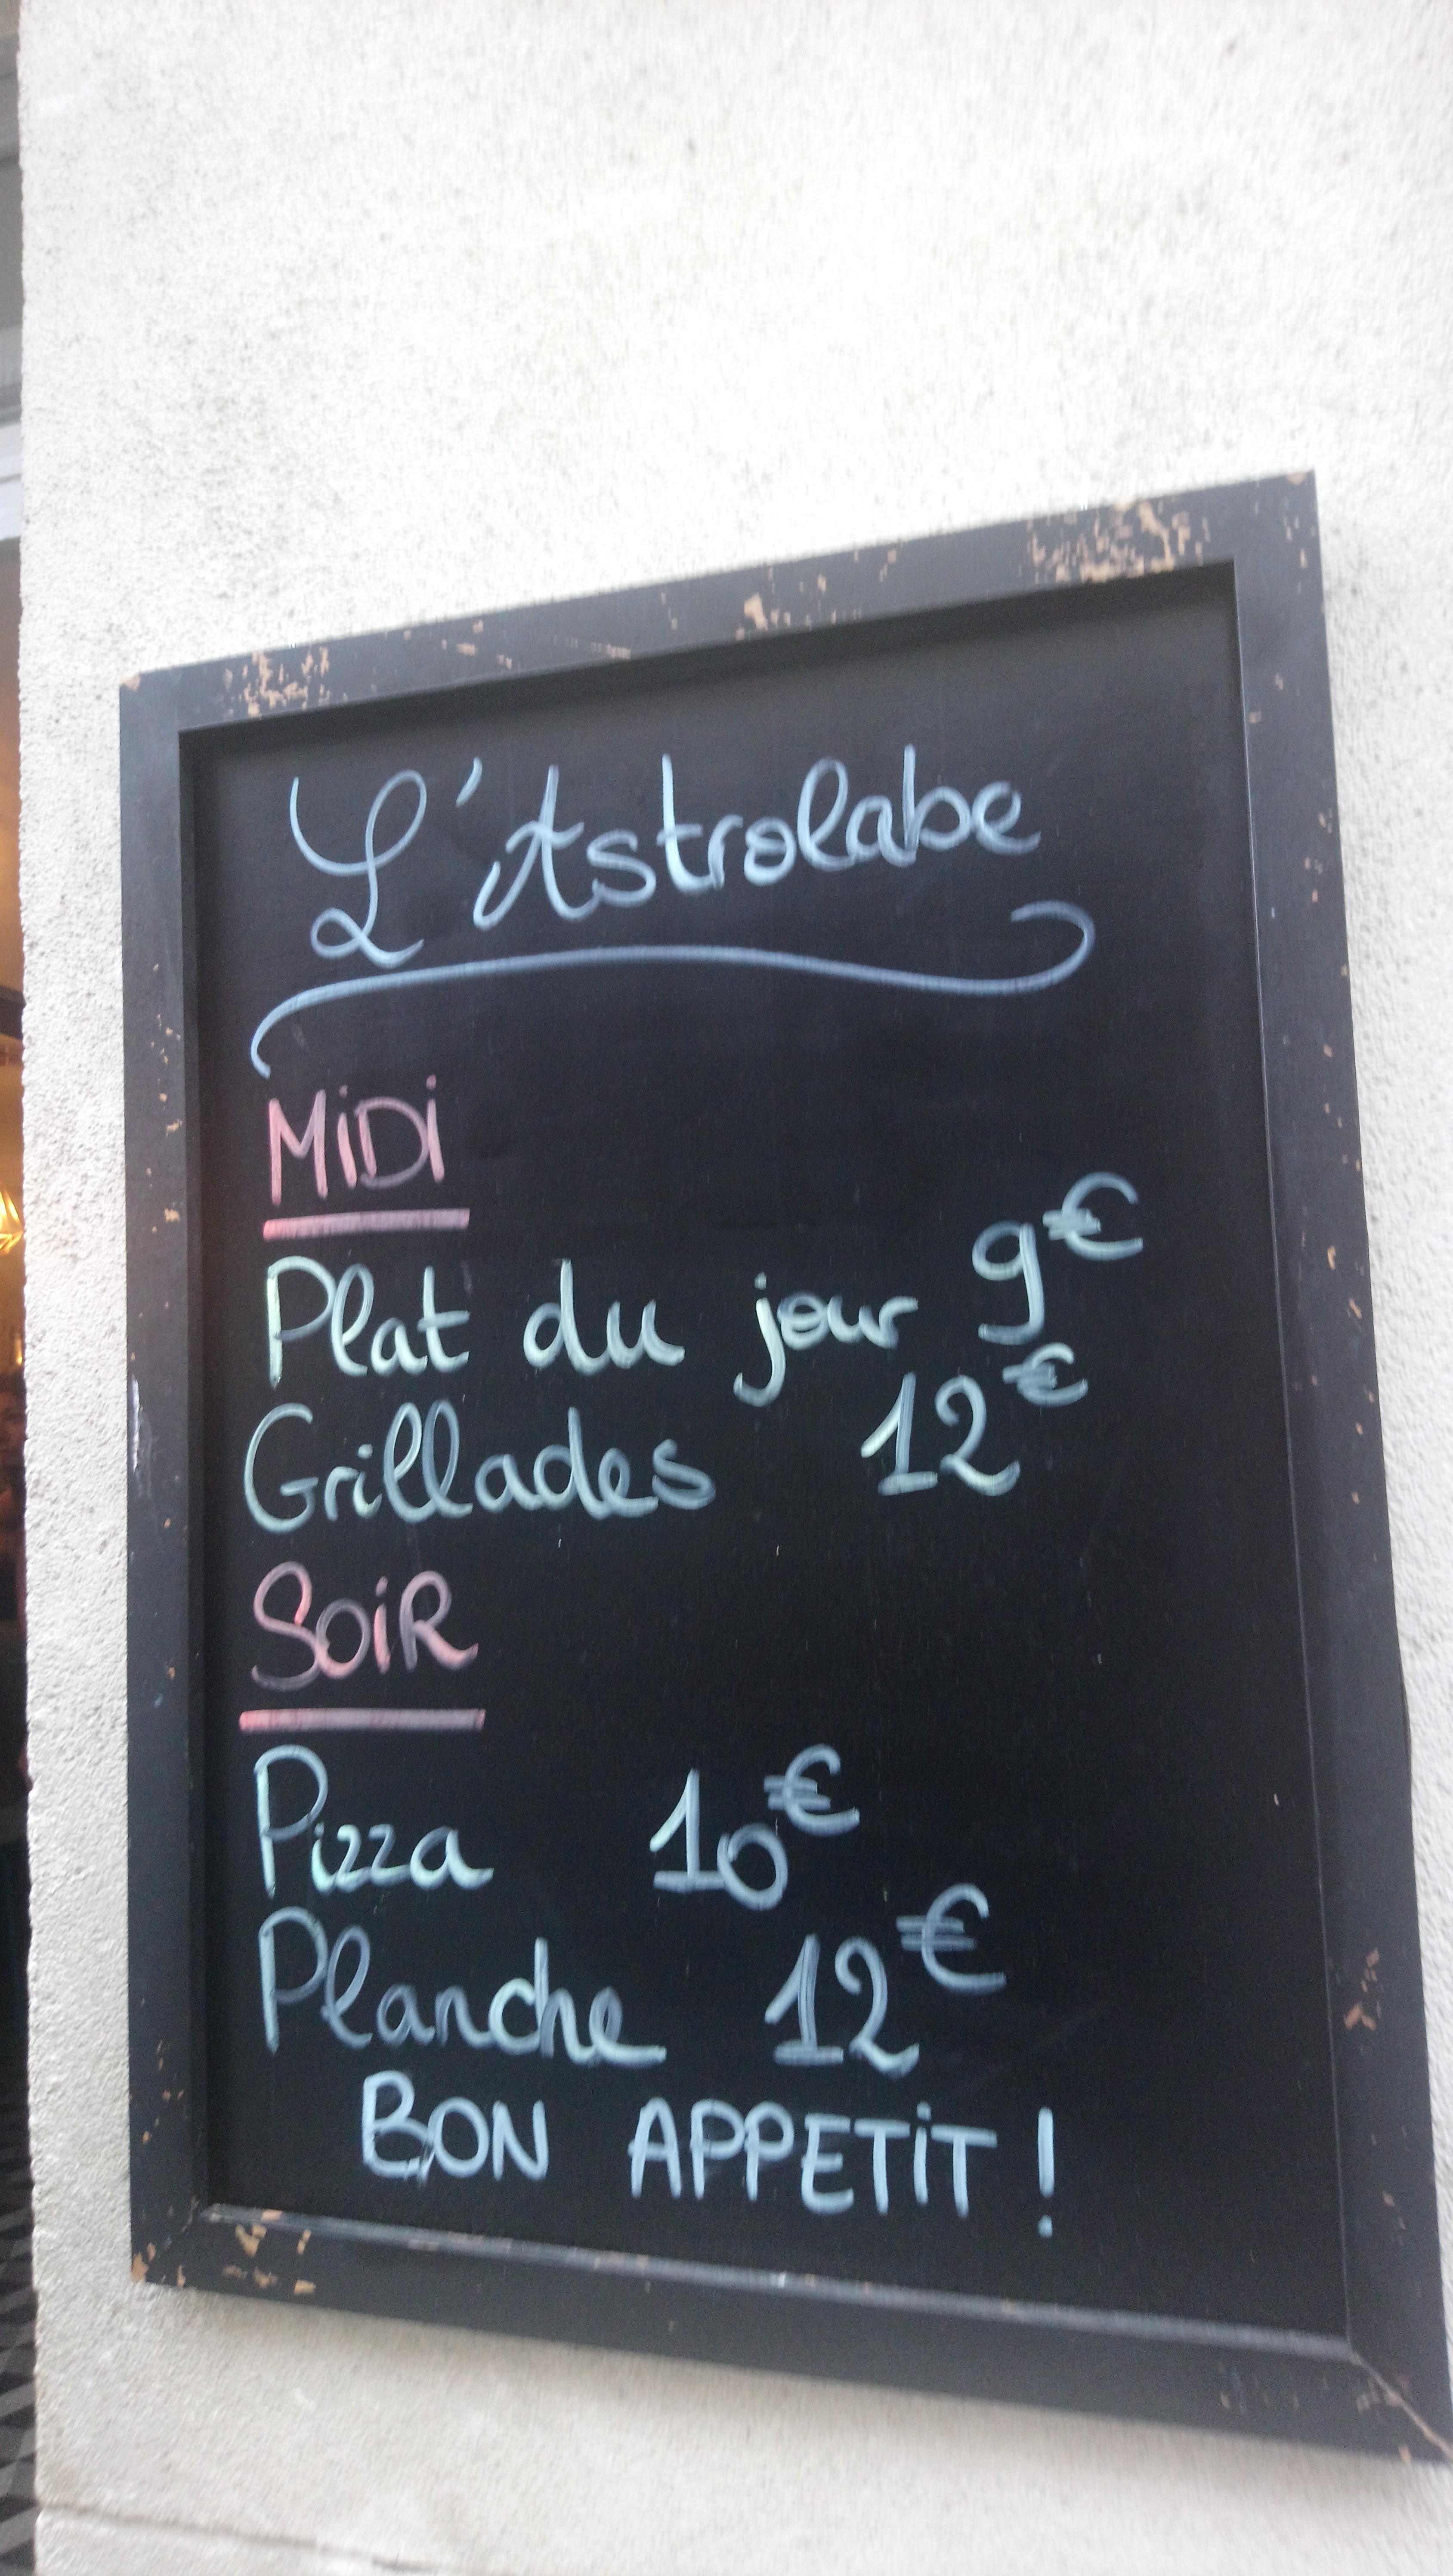 L'Astrolabe
MiDi
Plat du jour 9€
Grillades 12€
SOiR
Pizza 10€
Planche 12€
BON APPETiT !